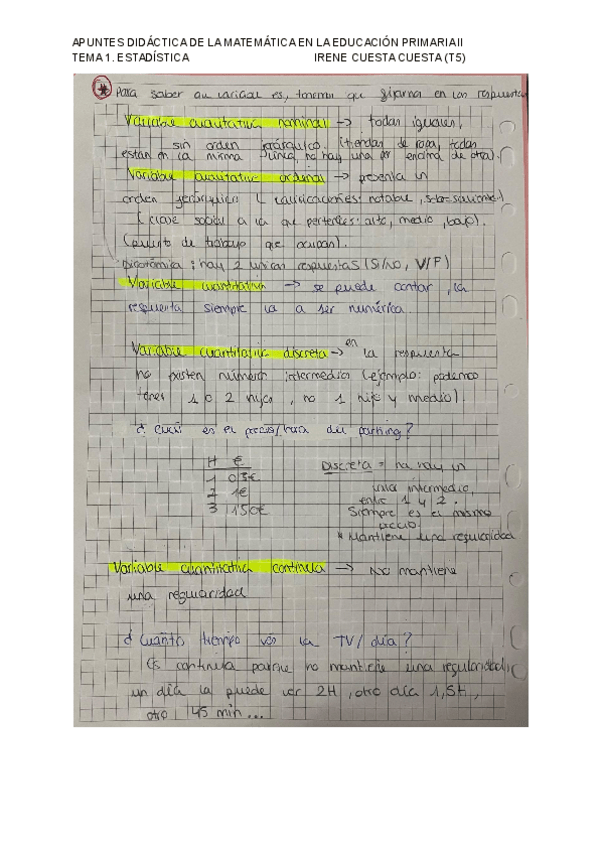 APUNTES DIDÁCTICA DE LA MATEMÁTICA EN LA EDUCACIÓN PRIMARIA II
TEMA 1. ESTADÍSTICA IRENE CUESTA CUESTA (T5)
Para saber que variable es, tenemos que fijarnos en las respuestas
Variable cualitativa nominal → todas iguales,
sin orden jerárquico. (tiendas de ropa, todas
están en la misma línea, no hay una por encima de otra).
Variable cualitativa ordenal → presenta un
orden jerárquico (calificaciones: notable, sobresaliente)
(clase social a la que perteneces: alto, medio, bajo).
(puesto de trabajo que ocupan).
Dicotómica: hay 2 únicas respuestas (Si/NO, V/F)
Variable cuantitativa → se puede contar, la
respuesta siempre va a ser numérica.
Variable cuantitativa discreta → en la respuesta
no existen números intermedios (ejemplo: podemos
tener 1 o 2 hijos, no 1 hijo y medio).
¿Cuál es el precio/hora del parking?
H €
1 0'5€
2 1€
3 1'50€
Discreta = no hay un
intermedio,
entre 1 y 2.
Siempre es el mismo
* Mantiene una regularidad
Variable cuantitativa continua → No mantiene
una regularidad
¿Cuánto tiempo ves la TV/día?
Es continua porque no mantiene una regularidad,
un día la puede ver 2H, otro día 1,5H,
otro 45 min...